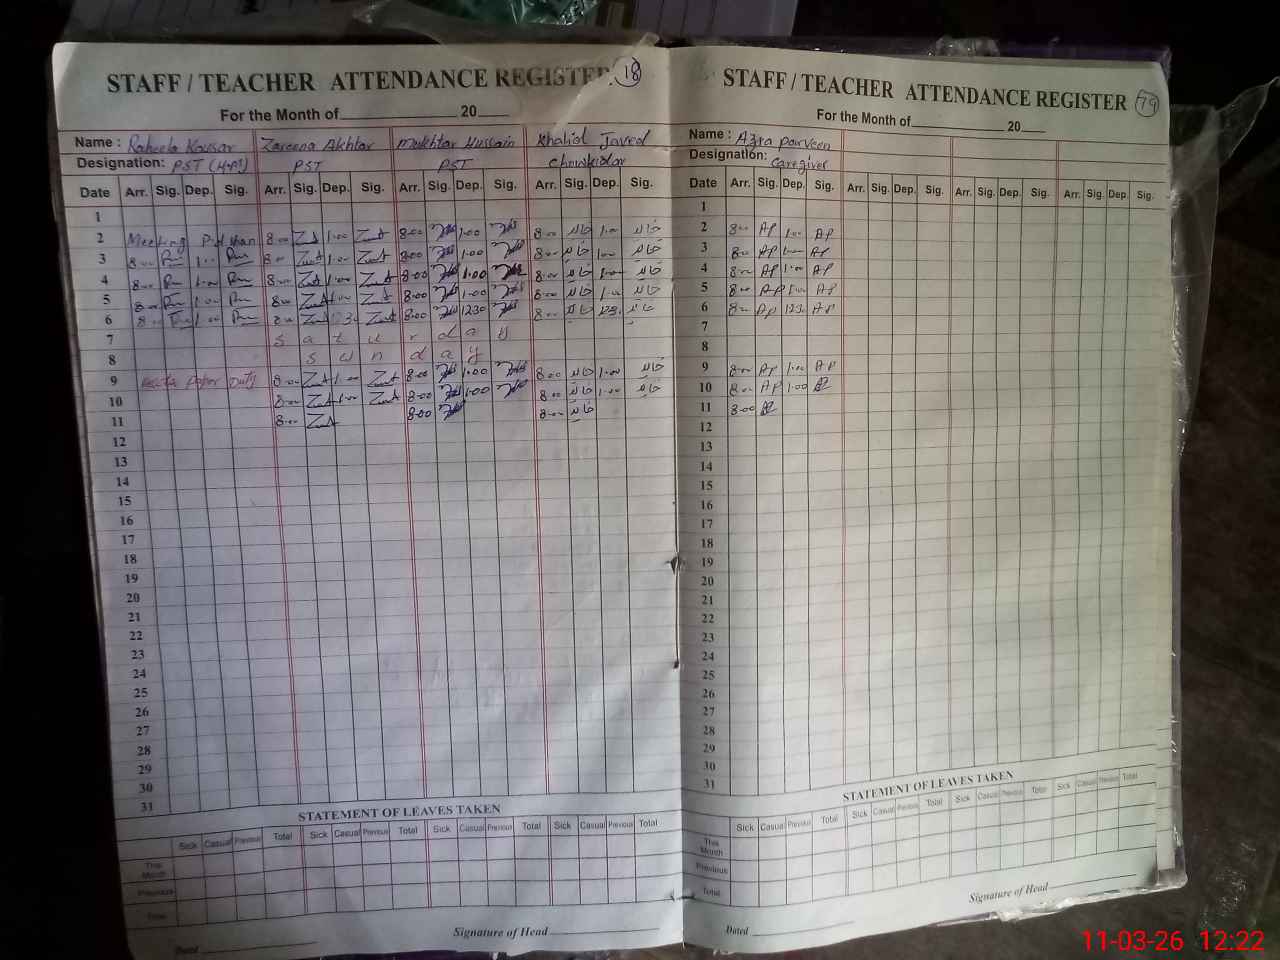 STAFF / TEACHER ATTENDANCE REGISTER 18
For the Month of 20
Name : Raheela Kausar Zareena Akhtar Mukhtar Hussain Khalid Javed
Designation: PST PST PST Chowkidar
Date Arr. Sig. Dep. Sig. Arr. Sig. Dep. Sig. Arr. Sig. Dep. Sig. Arr. Sig. Dep. Sig.
1
2 Meeting 8:00 1:00 8:00 1:00 8:00 1:00
3 8:00 1:00 8:00 1:00 8:00 1:00 8:00 1:00
4 8:00 1:00 8:00 1:00 8:00 1:00 8:00 1:00
5 8:00 1:00 8:00 1:00 8:00 1:00 8:00 1:00
6 8:00 1:00 8:00 12:30 8:00 12:30 8:00 12:30
7 Saturday
8 Sunday
9 Paper Duty 8:00 1:00 8:00 1:00 8:00 1:00
10 8:00 1:00 8:00 1:00 8:00 1:00
11 8:00 8:00 8:00
12
13
14
15
16
17
18
19
20
21
22
23
24
25
26
27
28
29
30
31
STATEMENT OF LEAVES TAKEN
Sick Casual Previous Total Sick Casual Previous Total Sick Casual Previous Total Sick Casual Previous Total
This Month
Previous
Total
Signature of Head
Dated
STAFF / TEACHER ATTENDANCE REGISTER 79
For the Month of 20
Name : Azra Parveen
Designation: Caregiver
Date Arr. Sig. Dep. Sig. Arr. Sig. Dep. Sig. Arr. Sig. Dep. Sig. Arr. Sig. Dep. Sig.
1
2 8:00 AP 1:00 AP
3 8:00 AP 1:00 AP
4 8:00 AP 1:00 AP
5 8:00 AP 1:00 AP
6 8:00 AP 12:30 AP
7
8
9 8:00 AP 1:00 AP
10 8:00 AP 1:00 AP
11 8:00 AP
12
13
14
15
16
17
18
19
20
21
22
23
24
25
26
27
28
29
30
31
STATEMENT OF LEAVES TAKEN
Sick Casual Previous Total Sick Casual Previous Total Sick Casual Previous Total
This Month
Previous
Total
Signature of Head
Dated
11-03-26 12:22